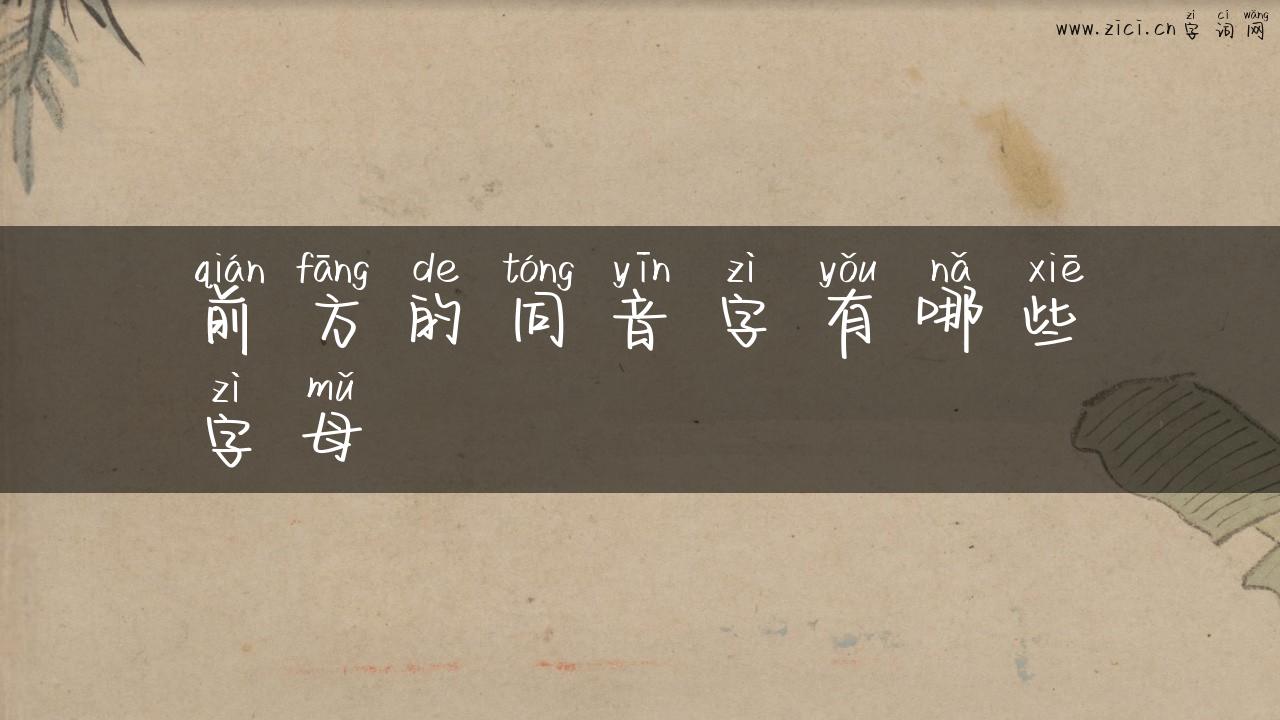 zì cí wǎng
www.zici.cn 字词网
qián fāng de tóng yīn zì yǒu nǎ xiē
前方的同音字有哪些
zì mǔ
字母